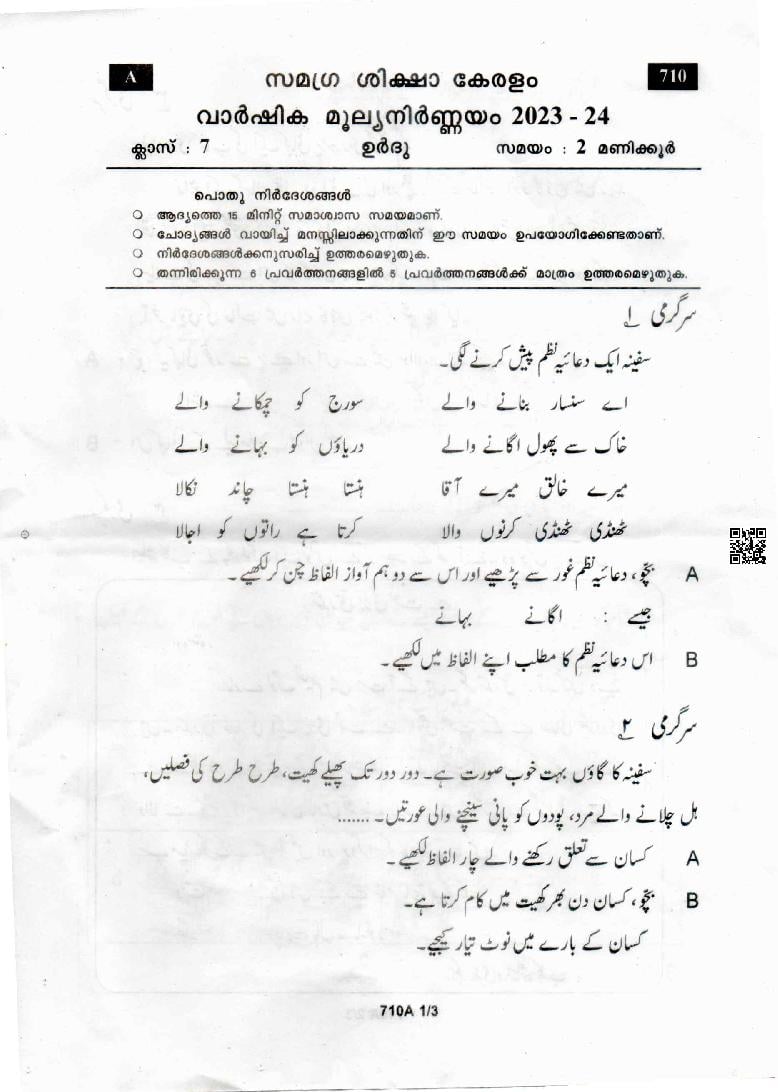 A
710
സമഗ്ര ശിക്ഷാ കേരളം
വാർഷിക മൂല്യനിർണ്ണയം 2023 - 24
ക്ലാസ് : 7 ഉർദു സമയം : 2 മണിക്കൂർ
പൊതു നിർദേശങ്ങൾ
○ ആദ്യത്തെ 15 മിനിറ്റ് സമാശ്വാസ സമയമാണ്.
○ ചോദ്യങ്ങൾ വായിച്ച് മനസ്സിലാക്കുന്നതിന് ഈ സമയം ഉപയോഗിക്കേണ്ടതാണ്.
○ നിർദേശങ്ങൾക്കനുസരിച്ച് ഉത്തരമെഴുതുക.
○ തന്നിരിക്കുന്ന 6 പ്രവർത്തനങ്ങളിൽ 5 പ്രവർത്തനങ്ങൾക്ക് മാത്രം ഉത്തരമെഴുതുക.
سرگرمی ۱
سفینہ ایک دعائیہ نظم پیش کرنے لگی۔
اے سنسار بنانے والے سورج کو چمکانے والے
خاک سے پھول اگانے والے دریاؤں کو بہانے والے
میرے خالق میرے آقا ہنستا ہنستا چاند نکالا
ٹھنڈی ٹھنڈی کرنوں والا کرتا ہے راتوں کو اجالا
A بچّو، دعائیہ نظم غور سے پڑھیے اور اس سے دو ہم آواز الفاظ چن کر لکھیے۔
جیسے : اگانے بہانے
B اس دعائیہ نظم کا مطلب اپنے الفاظ میں لکھیے۔
سرگرمی ۲
سفینہ کا گاؤں بہت خوب صورت ہے۔ دور دور تک پھیلے کھیت، طرح طرح کی فصلیں،
ہل چلانے والے مرد، پودوں کو پانی سینچنے والی عورتیں۔ .......
A کسان سے تعلق رکھنے والے چار الفاظ لکھیے۔
B بچّو، کسان دن بھر کھیت میں کام کرتا ہے۔
کسان کے بارے میں نوٹ تیار کیجیے۔
710A 1/3